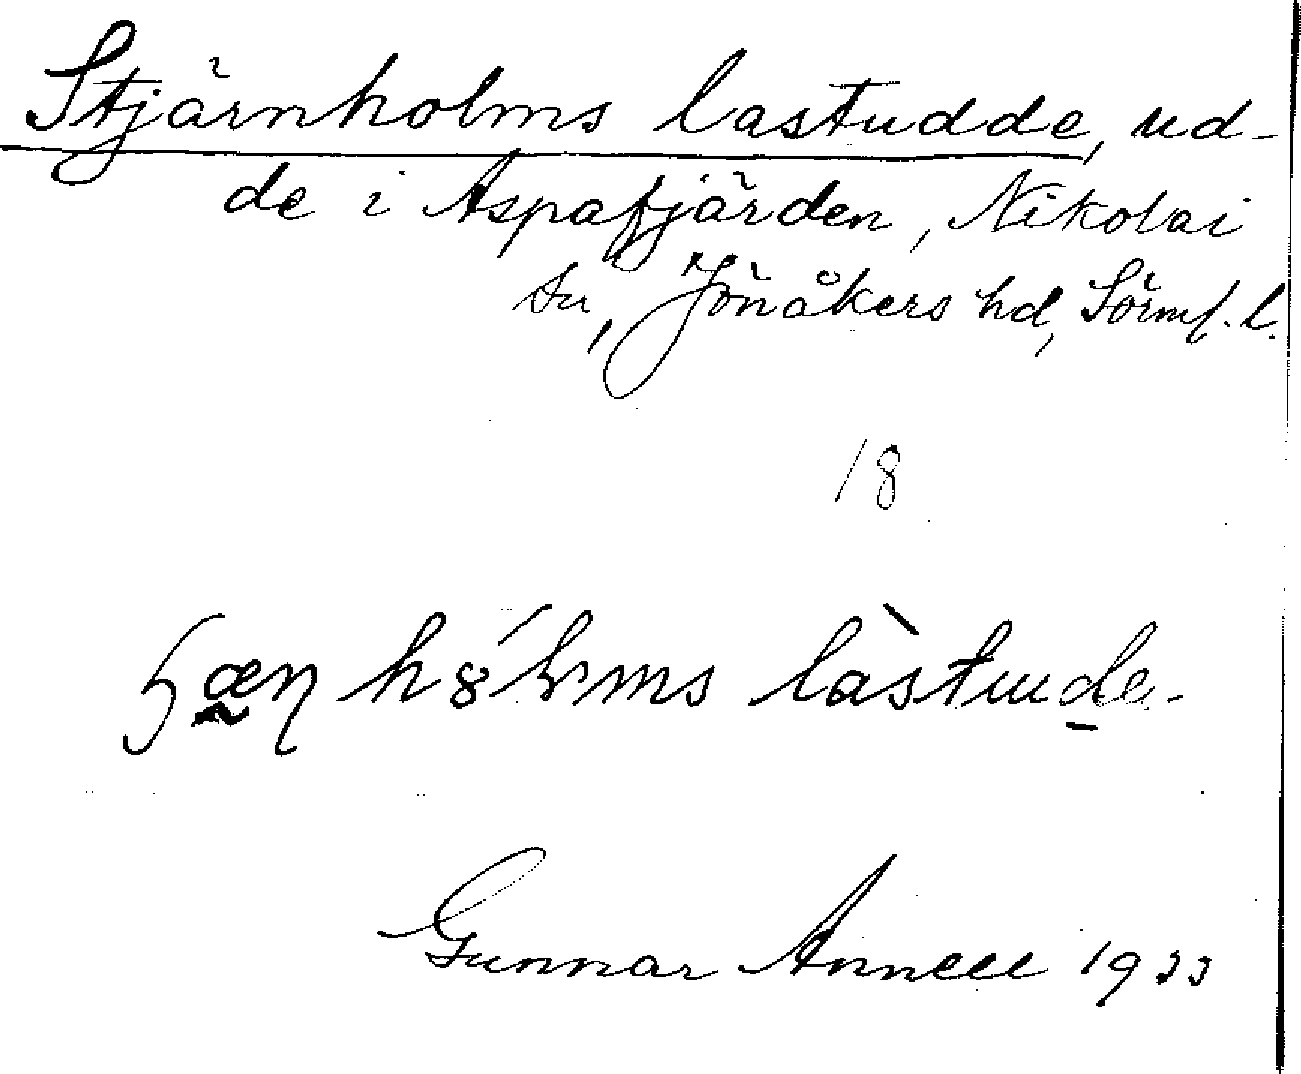 Stjärnholms lastudde, ud-
de i Aspafjärden, Nikolai
sn, Jönåkers hd, Sörml. l.
18
lastude.
Gunnar Annell 1933